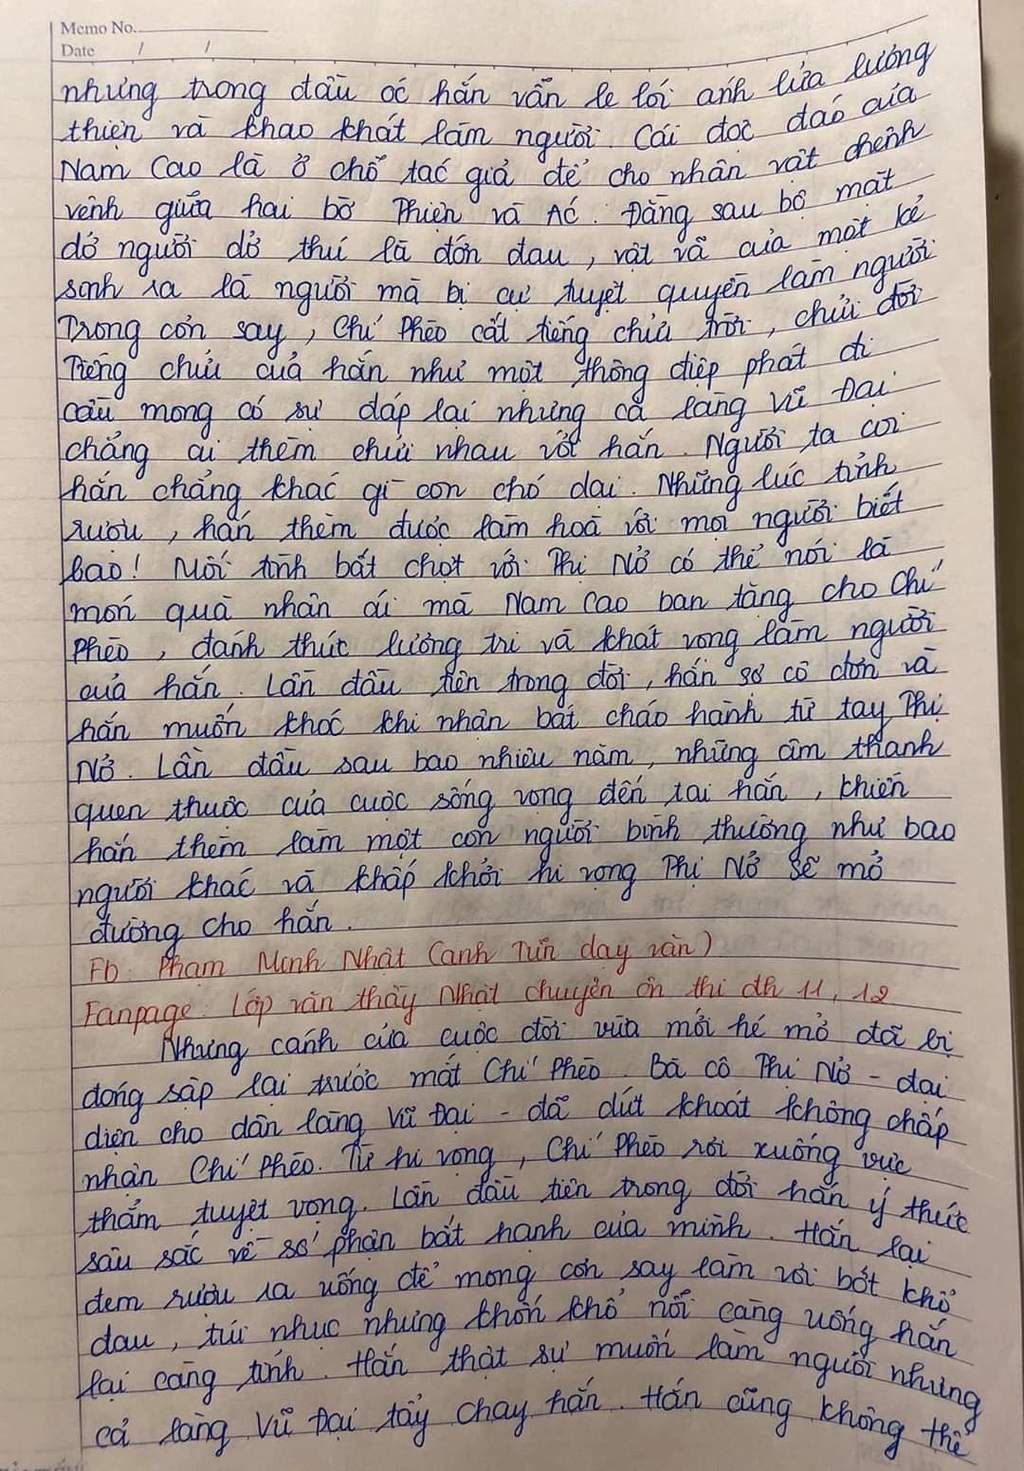 Memo No.
Date / /
nhưng trong đầu óc hắn vẫn le lói ánh lửa lương
thiện và khao khát làm người. Cái độc đáo của
Nam Cao là ở chỗ tác giả để cho nhân vật chênh
vênh giữa hai bờ Thiện và Ác. Đằng sau bộ mặt
dở người dở thú là đớn đau, vật vã của một kẻ
sinh ra là người mà bị cự tuyệt quyền làm người
Trong cơn say, Chí Phèo cất tiếng chửi trời, chửi đời
Tiếng chửi của hắn như một thông điệp phát đi
cầu mong có sự đáp lại nhưng cả làng Vũ Đại
chẳng ai thèm chửi nhau với hắn. Người ta coi
hắn chẳng khác gì con chó dại. Những lúc tỉnh
rượu, hắn thèm được làm hoà với mọi người biết
bao! Mối tình bất chợt với Thị Nở có thể nói là
món quà nhân ái mà Nam Cao ban tặng cho Chí
Phèo, đánh thức lương tri và khát vọng làm người
của hắn. Lần đầu tiên trong đời, hắn sợ cô đơn và
hắn muốn khóc khi nhận bát cháo hành từ tay Thị
Nở. Lần đầu sau bao nhiêu năm, những âm thanh
quen thuộc của cuộc sống vọng đến tai hắn, khiến
hắn thèm làm một con người bình thường như bao
người khác và khấp khởi hi vọng Thị Nở sẽ mở
đường cho hắn.
Fb: Phạm Minh Nhật (anh Tưn dạy văn)
Fanpage: Lớp văn thầy Nhật chuyên ôn thi đh 11, 12
Nhưng cánh cửa cuộc đời vừa mới hé mở đã bị
đóng sập lại trước mắt Chí Phèo. Bà cô Thị Nở - đại
diện cho dân làng Vũ Đại - đã dứt khoát không chấp
nhận Chí Phèo. Từ hi vọng, Chí Phèo rơi xuống vực
thẳm tuyệt vọng. Lần đầu tiên trong đời hắn ý thức
sâu sắc về số phận bất hạnh của mình. Hắn lại
đem rượu ra uống để mong cơn say làm vơi bớt khổ
đau, tủi nhục nhưng khốn khổ nỗi càng uống hắn
lại càng tỉnh. Hắn thật sự muốn làm người nhưng
cả làng Vũ Đại tẩy chay hắn. Hắn cũng không thể